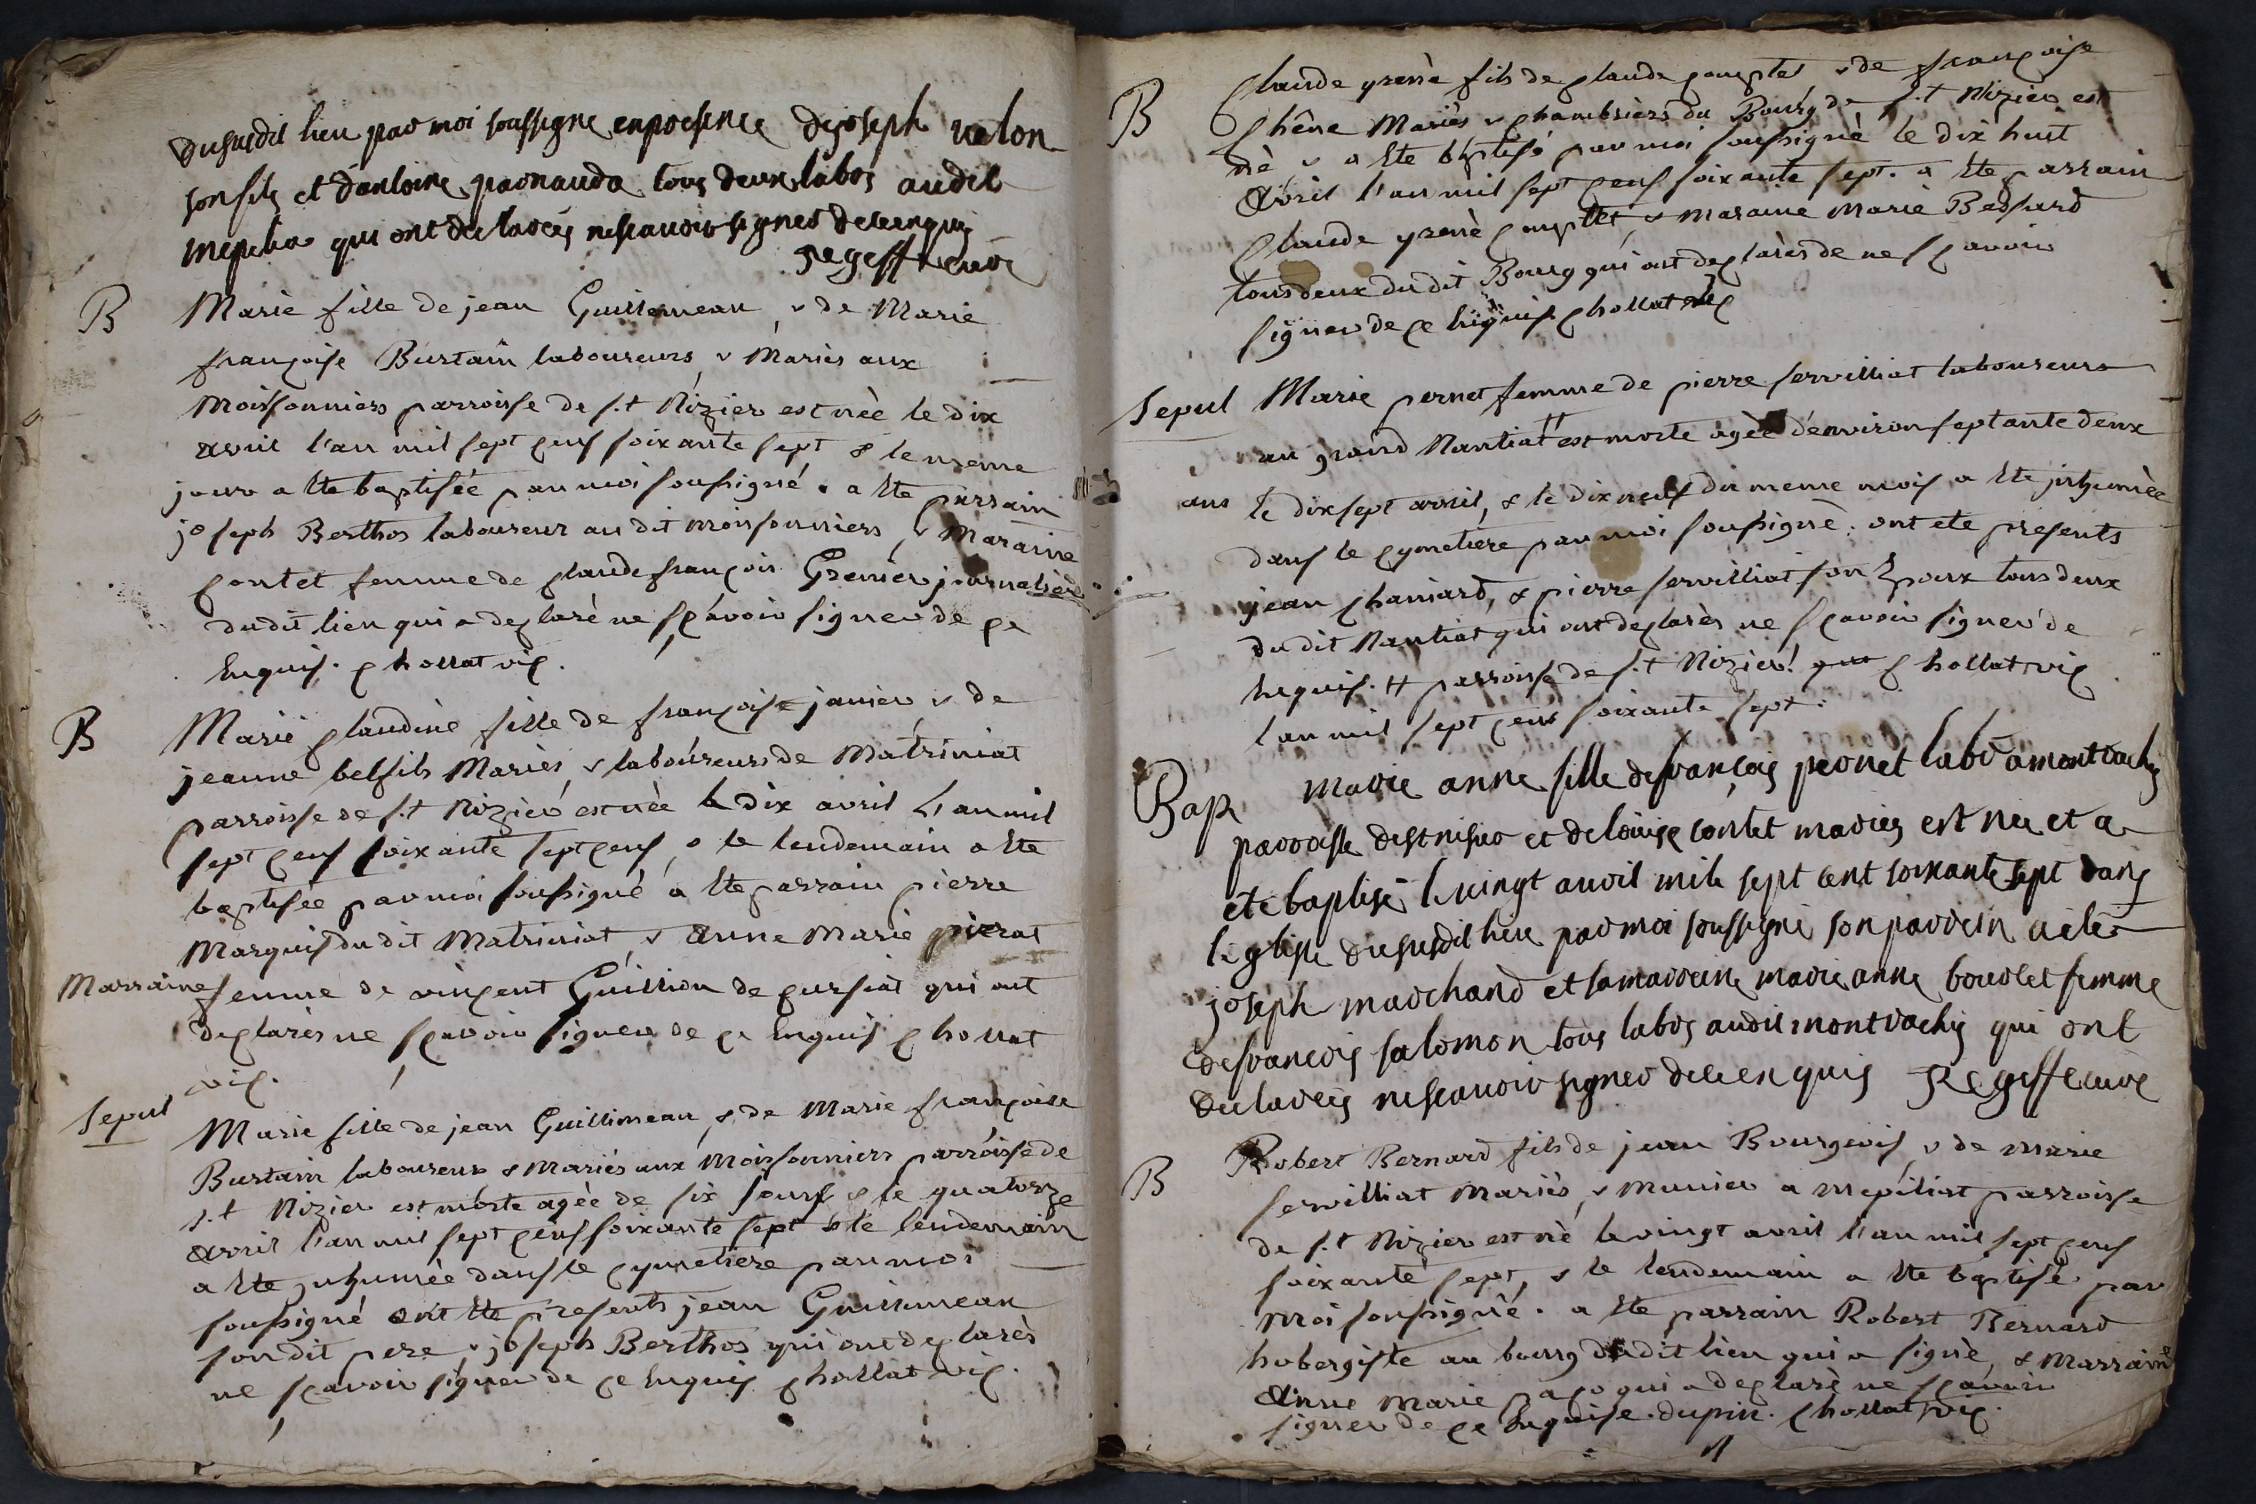 dususdit lieu par moi soussigne en presence de joseph velon
son fils et d'antoine parnauda tous deux labrs audit
mepilia qui ont declarés ne scavoir signer de ce enquis
geffr curé
B Marie fille de jean Guillemeau, & de Marie
françoise Burtain laboureurs, & Mariés aux
Moissonniers parroisse de s.t Nizier est née le dix
avril l'an mil sept cens soixante sept & le meme
jour a ete baptisée par moi soussigné. a ete parrain
joseph Berthos laboureur au dit moissonniers, & Maraine
contet femme de claude françois Grenier journaliere
dudit lieu qui a declaré ne sçavoir signer de ce
Enquis. chollat vic.
B Marie claudine fille de françoise janier, & de
jeanne belfils Mariés, & laboureurs de Matriniat
parroisse de s.t Nizier est née le dix avril L'an mil
sept cens soixante sept cens, & le lendemain a ete
baptisée par moi soussigné a ete parrain pierre
Marquis du dit Matriniat & Anne Marie pierat
Marraine femme de vincent Guillion de cursiat qui ont
declarés ne sçavoir signer de ce Enquis chollat
vic.
Sepul Marie fille de jean Guillimeau, & de Marie françoise
Burtain laboureurs & Mariés aux Moissonniers parroisse de
s.t Nizier est morte agée de six jours & le quatorze
avril l'an mil sept cens soixante sept & le lendemain
a ete inhumée dans le cymetiere par moi
soussigné ont ete presents jean Guillimeau
son dit pere & joseph Berthos qui ont declarés
ne sçavoir signer de ce Enquis chollat vic.
B Claude grené fils de claude & de françoise
chêne Mariés & chambriers du Bourg de s.t Nizier est
né, & a ete baptisé par moi soussigné le dix huit
Avril l'an mil sept cens soixante sept. a ete parrain
Claude grené & maraine Marie Bessard
tous deux du dit Bourg qui ont declarés de ne sçavoir
signer de ce Enquis chollat vic
Sepul Marie pernet femme de pierre servilliat laboureur
au grand Nantiat # est morte agée d'environ septante deux
ans le dix sept avril, & le dix neuf du meme mois a ete inhumée
dans le cymetiere par moi soussigné. ont ete presents
jean chaniard, & pierre servilliat son Epoux tous deux
du dit Nantiat qui ont declarés ne sçavoir signer de
Enquis. # parroisse de s.t Nizier. chollat vic
l'an mil sept cens soixante sept.
Bap marie anne fille de francois peonet labr a montrachy
parroisse de st nisier et de louise contet maries est nee et a
ete baptisé le vingt avril mile sept cent soixante sept dans
leglisse dususdit lieu par moi soussigné son parrein a ete
joseph marchand et sa marreine marie anne bourlet femme
de francois salomon tous labrs audit montrachy qui ont
declarés ne scavoir signer de ce enquis geffr curé
B Robert Bernard fils de jean Bourgeois, & de marie
servilliat Mariés, & munier a mepilliat parroisse
de s.t Nizier est né le vingt avril l'an mil sept cens
soixante sept, & le lendemain a ete baptisé par
moi soussigné. a ete parrain Robert Bernard
hobergiste au bourg du dit lieu qui a signé, & Marraine
Anne Marie paco qui a declaré ne sçavoir
signer de ce Enquise. dupin. chollat vic.